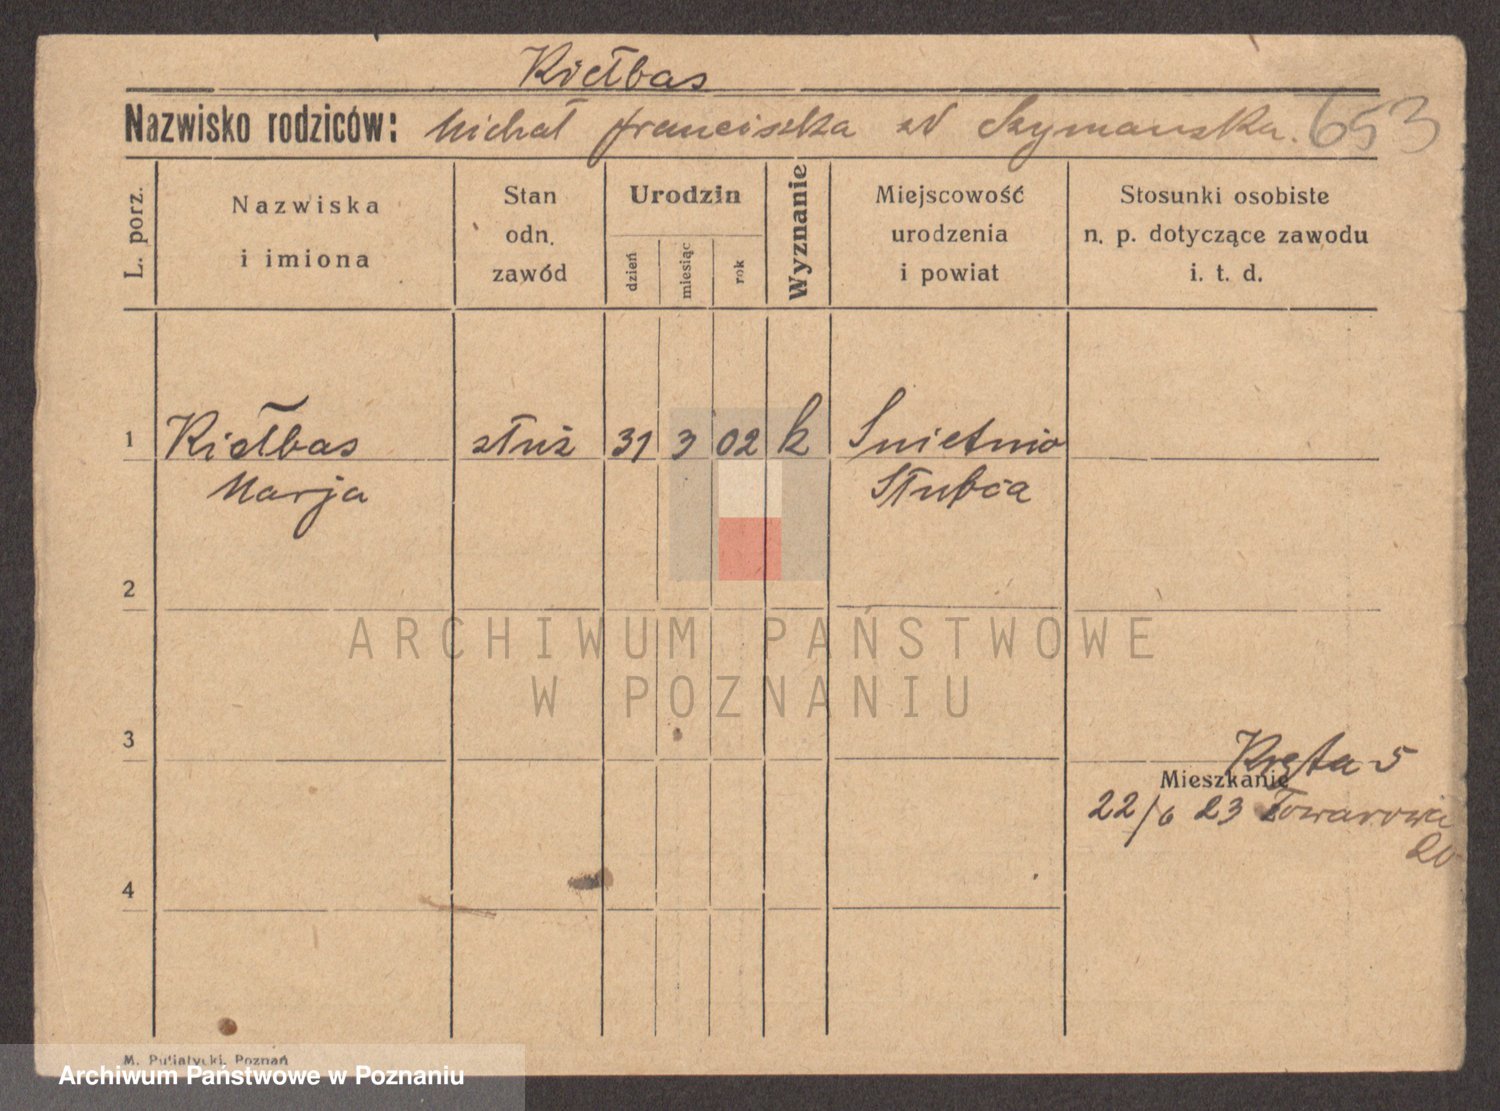 Kiełbas
Nazwisko rodziców: Michał Franciszka zd Szymanska. 653
L. porz.
Nazwiska
i imiona
Stan
odn.
zawód
Urodzin
dzień
miesiąc
rok
Wyznanie
Miejscowość
urodzenia
i powiat
Stosunki osobiste
n. p. dotyczące zawodu
i. t. d.
1 Kiełbas służ 31 3 02 k Snietnia
Marja Słupca
2
ARCHIWUM PAŃSTWOWE
W POZNANIU
3
Kręta 5
Mieszkanie
22/6 23 Towarowa
20
4
M. Putiatycki, Poznań
Archiwum Państwowe w Poznaniu